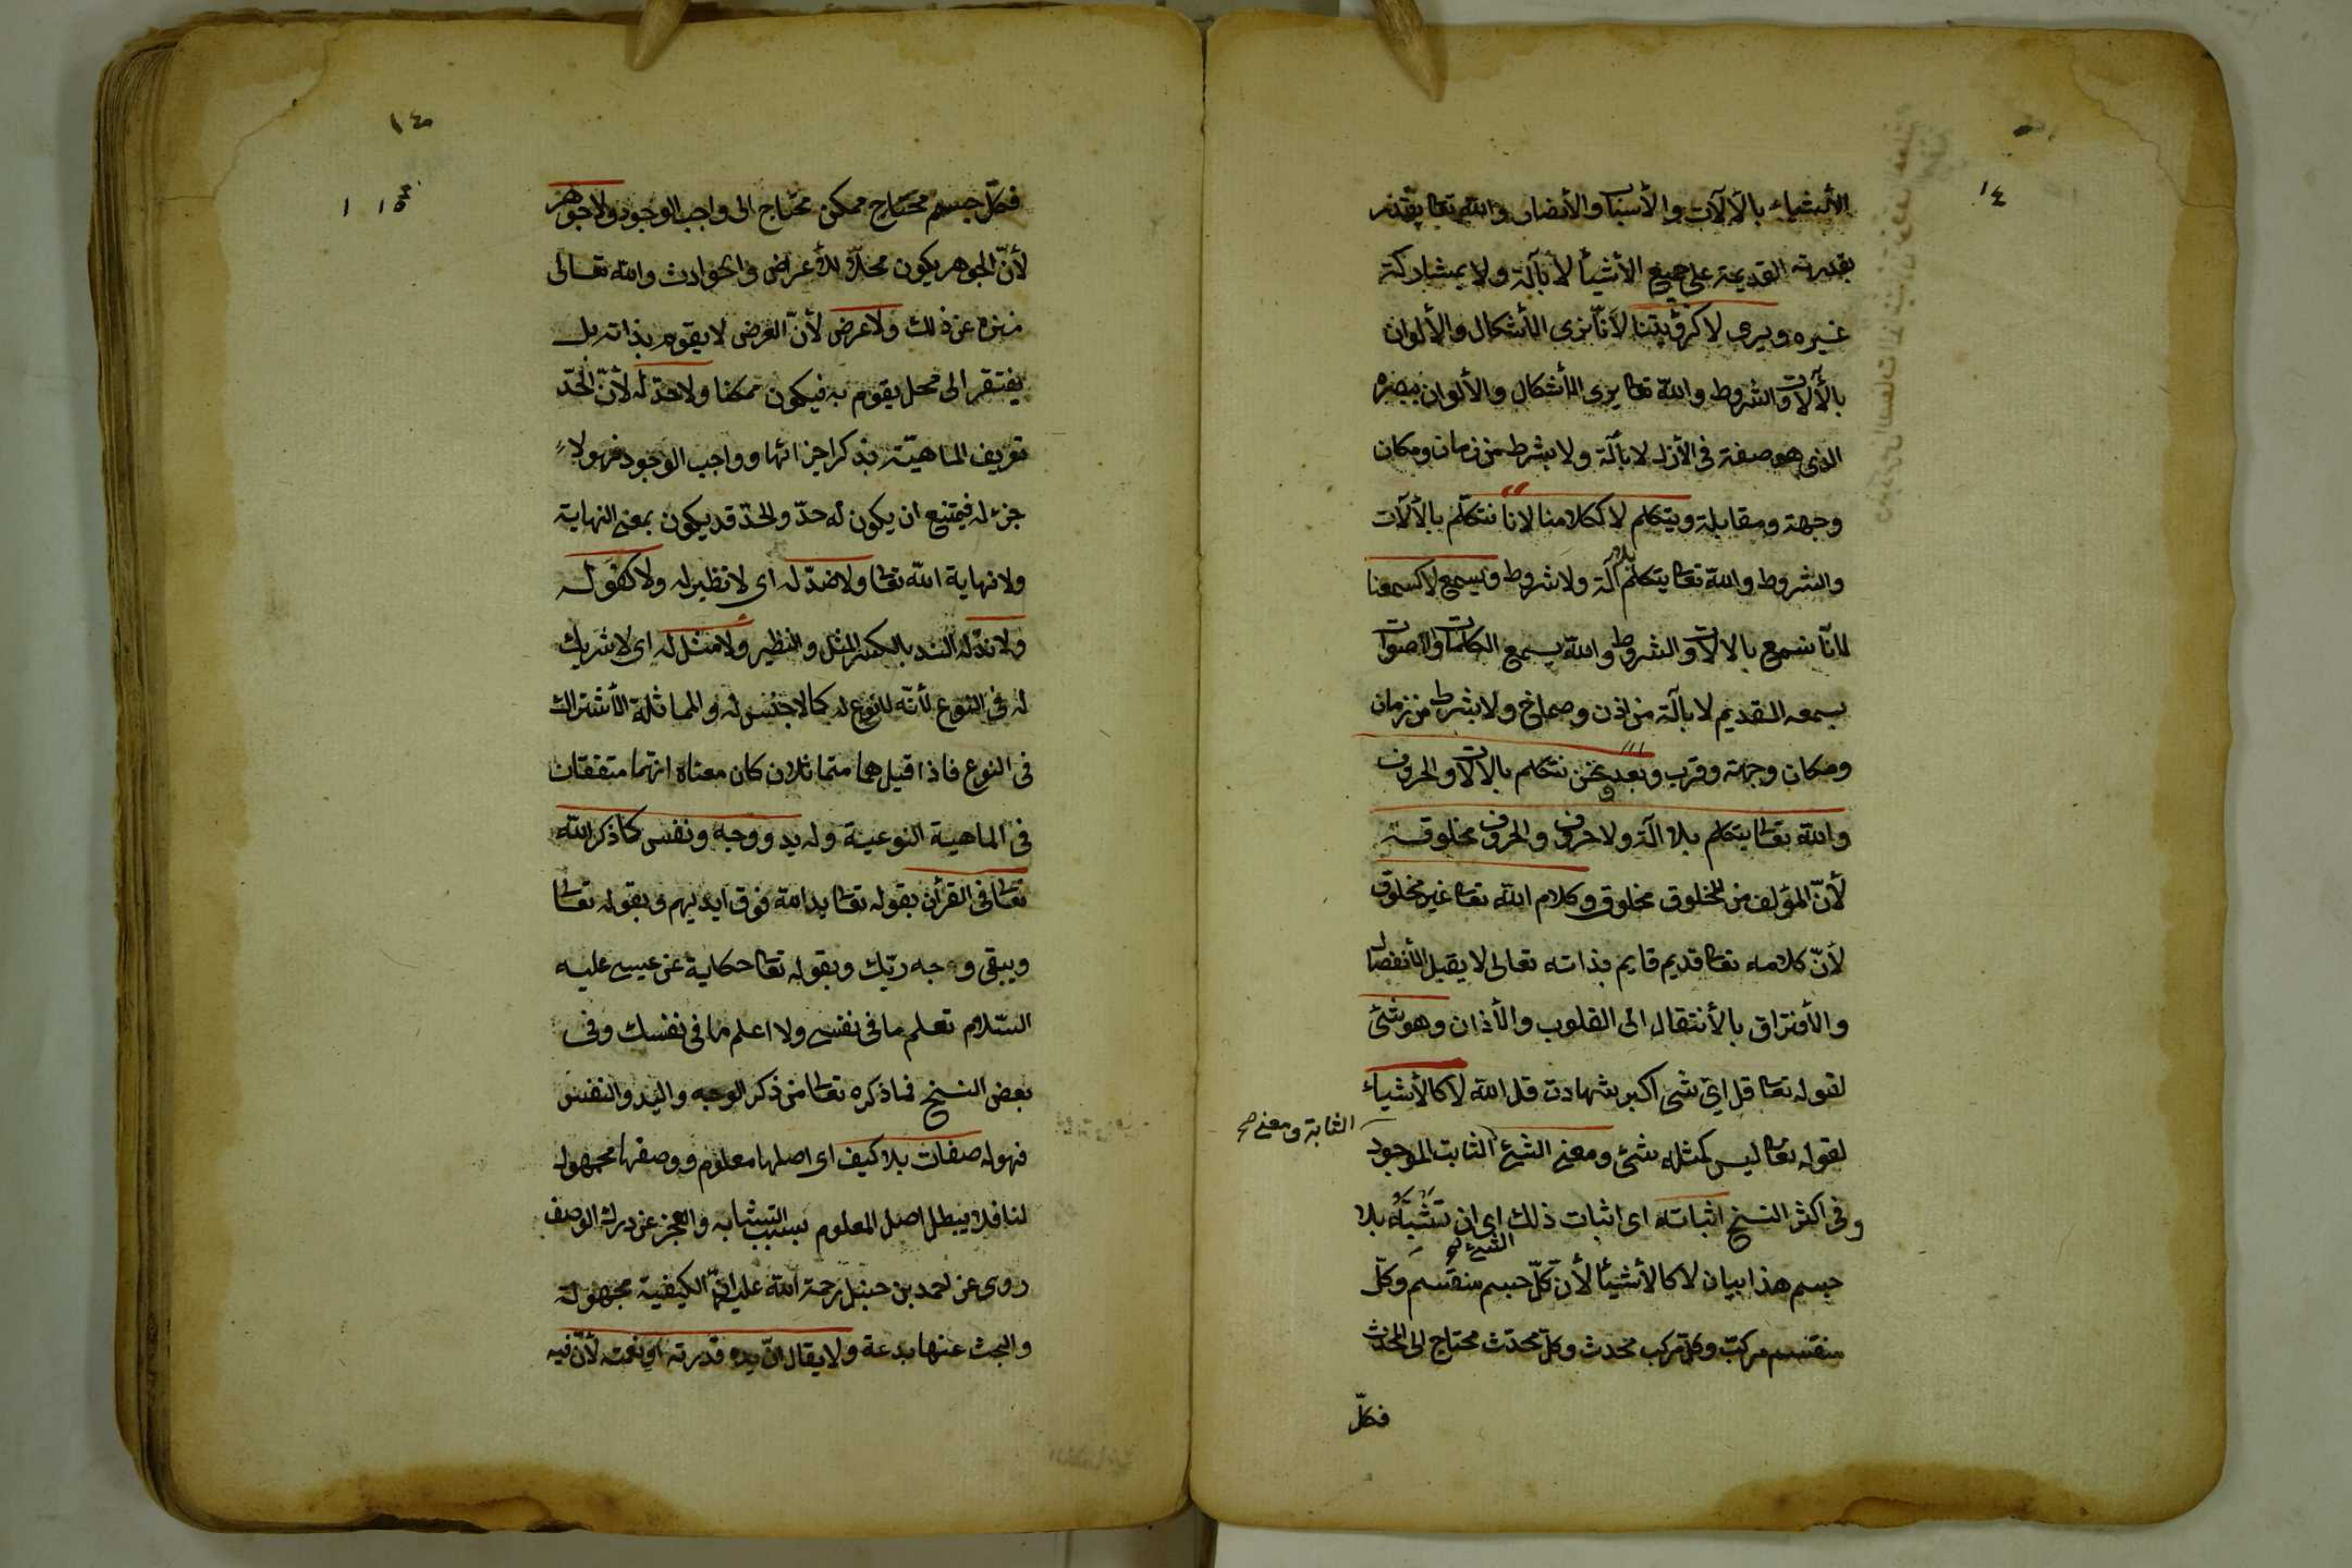 ١٤
الأشياء بالألآت والأسباب والأنصار والله تعا يقدر
بقدرته القديمة على جميع الأشيأ لا بآلة ولا بمشاركة
غيره ويرى لا كرؤيتنا لأنّا نرى الأشكال والألوان
بالآلات والشروط والله تعا يرى الأشكال والألوان ببصره
الذى هو صفته فى الأزل لا بآلة ولا بشرط من زمان ومكان
وجهة ومقابلة ويتكلم لا ككلامنا لانا نتكلّم بالآلات
والشروط والله تعا يتكلم بلا آلة ولا شروط ويسمع لا كسمعنا
لأنّا نسمع بالالات والشروط والله يسمع الكلمات والأصوات
بسمعه القديم لا بآلة من اذن وصماخ ولا بشرط من زمان
ومكان وجهة وقرب وبعد ونحن نتكلم بالالات والحروف
والله تعا يتكلم بلا الة ولا حروف والحروف مخلوقة
لأنّ المؤلف من المخلوق مخلوق وكلام الله تعا غير مخلوق
لأنّ كلامه تعا قديم قايم بذاته تعالى لا يقبل الأنفصال
والأفتراق بالأنتقال الى القلوب والأذان وهو شئ
لقوله تعا قل اىّ شى اكبر شهادت قل الله لا كالأشياء
لقوله تعا ليس كمثله شئ ومعنى الشئ الثابت الموجود
الثابة ومعنى صح
وفى اكثر النسخ اثباته اى اثبات ذلك اى ان تثبته بلا
الشئ
جسم هذا بيان لا كالأشيأ لأنّ كلّ جسم منقسم وكلّ
منقسم مركبّ وكلّ مركب محدث وكلّ محدث محتاج الى المحدث
فكلّ
١٥
فكلّ جسم محتاج ممكن محتاج الى واجب الوجود ولا جوهر
لأنّ الجوهر يكون محلاّ للأعراض والحوادث والله تعالى
منزه عن ذلك ولا عرض لأنّ العرض لا يقوم بذاته بل
يفتقر الى محل يقوم به فيكون ممكنا ولا حدّ له لأنّ الحدّ
تعريف الماهيّة بذكر اجزائها وواجب الوجود فهو لا
جزء له فيمتنع ان يكون له حدّ والحدّ قد يكون بمعنى النهاية
ولا نهاية الله تعا ولا ضدّ له اى لا نظير له ولا كفو له
ولا ندّ له الند بالكسر المثل والنظير ولا مثل له اى لا شريك
له فى النوع لأنّه لا نوع له كما لا جنس له والمماثلة الأشتراك
فى النوع فاذا قيل هما متماثلان كان معناه انهما متفقان
فى الماهية النوعية وله يد ووجه ونفس كما ذكر الله
تعا فى القرأن بقوله تعا يد الله فوق ايديهم وبقوله تعا
ويبقى وجه ربّك وبقوله تعا حكاية عن عيسى عليه
السّلام تعلم ما فى نفسى ولا اعلم ما فى نفسك وفى
بعض النسخ فما ذكره تعا من ذكر الوجه واليد والنفس
فهو له صفات بلا كيف اى اصلها معلوم ووصفها مجهول
لنا فلا يبطل اصل المعلوم بسبب التشابه والعجز عن درك الوصف
روى عن احمد بن حنبل رحمة الله عليه انّ الكيفية مجهولة
والبحث عنها بدعة ولا يقال انّ يده قدرته او نعمته لأنّ فيه